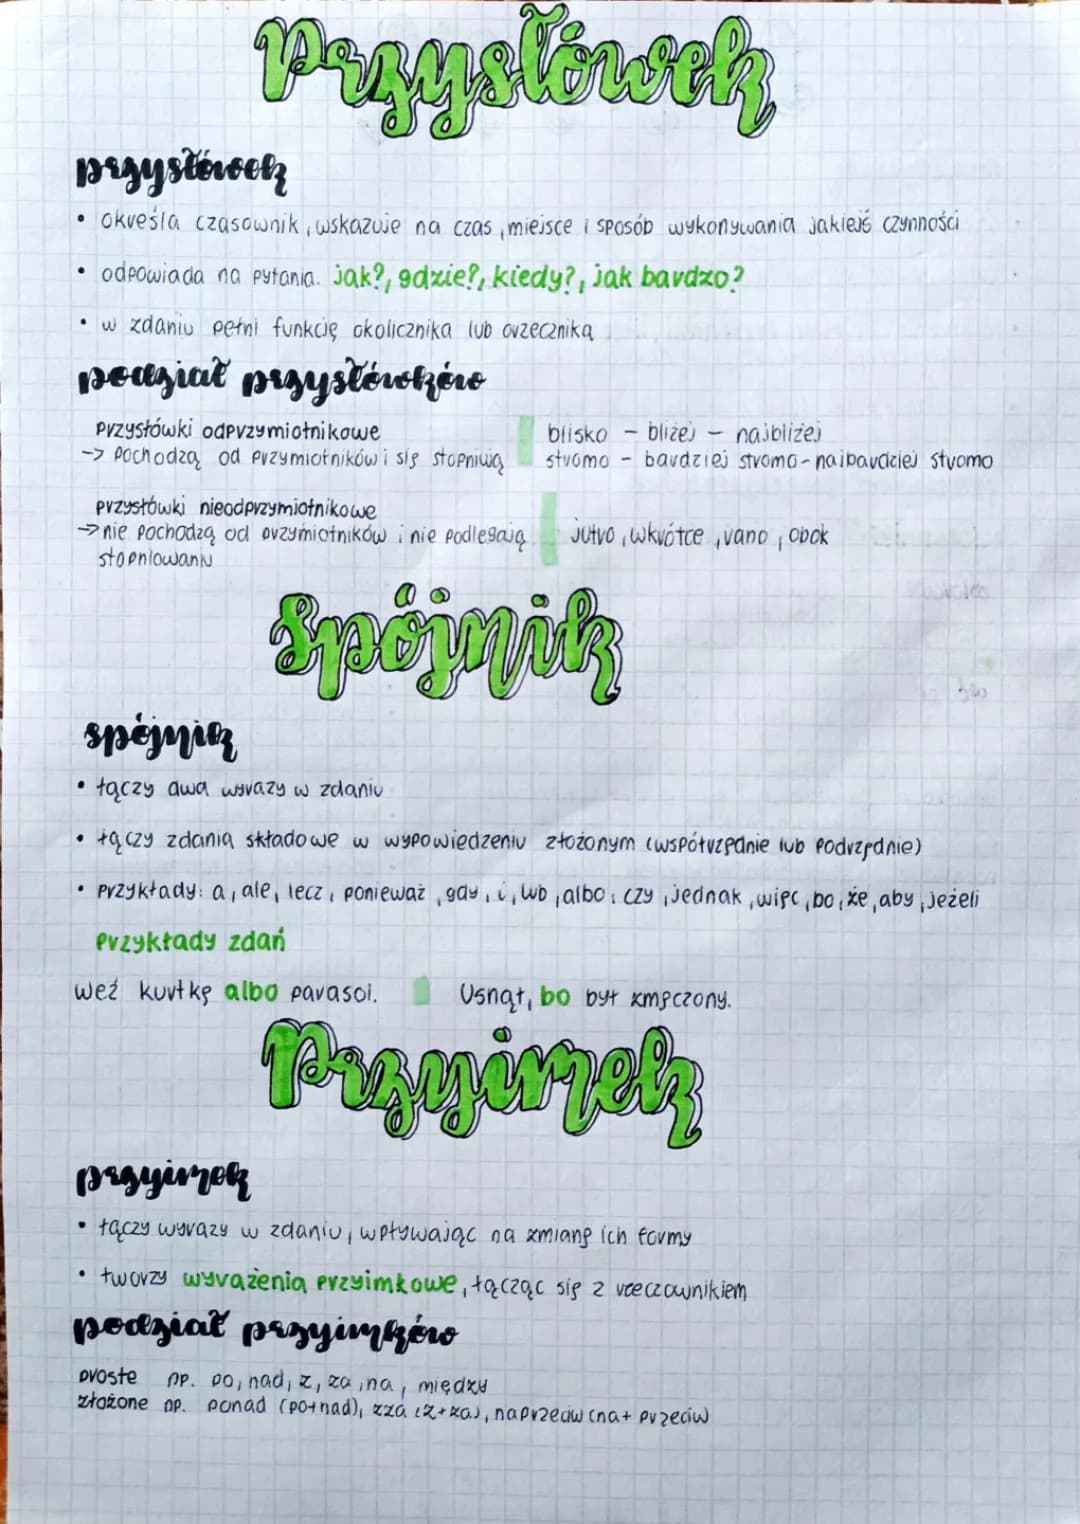 Przysłówek
przysłówek
• określa czasownik, wskazuje na czas, miejsce i sposób wykonywania jakiejś czynności
• odpowiada na pytania. jak?, gdzie?, kiedy?, jak bardzo?
• w zdaniu pełni funkcję okolicznika lub orzecznika
podział przysłówków
przysłówki odprzymiotnikowe
-> pochodzą od przymiotników i się stopniują
blisko - bliżej - najbliżej
stromo - bardziej stromo - najbardziej stromo
przysłówki nieodprzymiotnikowe
-> nie pochodzą od przymiotników i nie podlegają
stopniowaniu
jutro, wkrótce, rano, obok
Spójnik
spójnik
• łączy dwa wyrazy w zdaniu
• łączy zdania składowe w wypowiedzeniu złożonym (współrzędnie lub podrzędnie)
• przykłady: a, ale, lecz, ponieważ, gdy, i, lub, albo, czy, jednak, więc, bo, że, aby, jeżeli
przykłady zdań
weź kurtkę albo parasol.
Usnął, bo był zmęczony.
Przyimek
przyimek
• łączy wyrazy w zdaniu, wpływając na zmianę ich formy
• tworzy wyrażenia przyimkowe, łącząc się z rzeczownikiem
podział przyimków
proste np. po, nad, z, za, na, między
złożone np. ponad (po+nad), zza (z+za), naprzeciw (na+ przeciw)